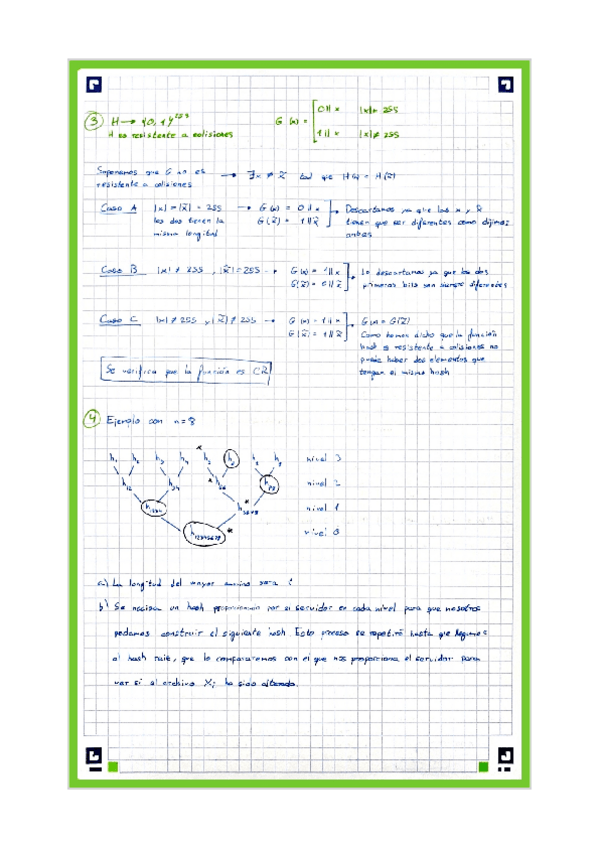 3 H → {0,1}²⁵⁵ G(x) = 0 || x |x| = 255
H es resistente a colisiones 1 || x |x| ≠ 255
Suponemos que G no es → ∃ x ≠ x̃ tal que H(x) = H(x̃)
resistente a colisiones
Caso A |x| = |x̃| = 255 → G(x) = 0 || x → Descartamos ya que las x y x̃
los dos tienen la G(x̃) = 1 || x̃ tienen que ser diferentes como dijimos
misma longitud antes
Caso B |x| ≠ 255, |x̃| = 255 → G(x) = 1 || x → lo descartamos ya que los dos
G(x̃) = 0 || x̃ primeros bits son siempre diferentes
Caso C |x| ≠ 255 y |x̃| ≠ 255 → G(x) = 1 || x → G(x) = G(x̃)
G(x̃) = 1 || x̃ Como hemos dicho que la función
hash es resistente a colisiones no
puede haber dos elementos que
tengan el mismo hash
Se verifica que la función es CR
4 Ejemplo con n=8
nivel 3
h12 h34 nivel 2
h1234 * h5678 nivel 1
h12345678 * nivel 0
a) La longitud del mayor camino será
b) Se necesita un hash proporcionado por el servidor en cada nivel para que nosotros
podamos construir el siguiente hash. Este proceso se repetirá hasta que lleguemos
al hash raíz, que lo compararemos con el que nos proporciona el servidor para
ver si el archivo Xi ha sido alterado.